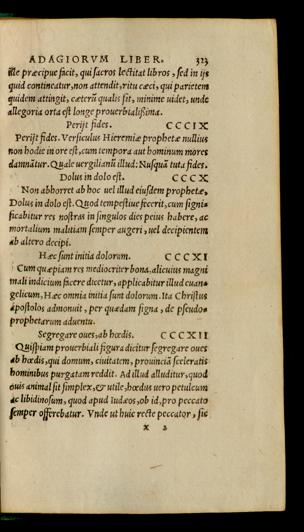 ADAGIORVM LIBER. 323
ille præcipue facit, qui sacros lectitat libros, sed in ijs
quid contineatur, non attendit, ritu cæci, qui parietem
quidem attingit, cæterũ qualis sit, minime uidet, unde
allegoria orta est longe prouerbialissima.
Perijt fides. CCCIX
Perijst fides. Versiculus Hieremiæ prophetæ nullius
non hodie in ore est, cum tempora aut hominum mores
damnãtur. Quale uergilianũ illud: Nusquã tuta fides.
Dolus in dolo est. CCCX
Non abhorret ab hoc uel illud eiusdem prophetæ,
Dolus in dolo est. Quod tempestiue fecerit, cum signi=
ficabitur res nostras in singulos dies peius habere, ac
mortalium malitiam semper augeri, uel decipientem
ab altero decipi.
Hæc sunt initia dolorum. CCCXI
Cum quæpiam res mediocriter bona alicuius magni
mali indicium facere dicetur, applicabitur illud euan=
gelicum, Hæc omnia initia sunt dolorum. Ita Christus
apostolos admonuit, per quædam signa, de pseudo=
prophetarum aduentu.
Segregare oues, ab hœdis. CCCXII
Quispiam prouerbiali figura dicitur segregare oues
ab hœdis, qui domum, ciuitatem, prouinciã sceleratis
hominibus purgatam reddit. Ad illud alluditur, quod
ouis animal sit simplex, & utile, hœdus uero petulcum
ac libidinosum, quod apud iudæos, ob id, pro peccato
semper offerebatur. Vnde ut huic recte peccator, sic
x 2